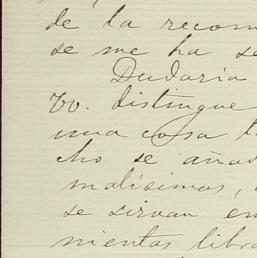 de la recom
se me ha se
Dudaría
Vo. distingue
una cosa t
cho se añad
malísimas,
se sirvan en
nientas libra